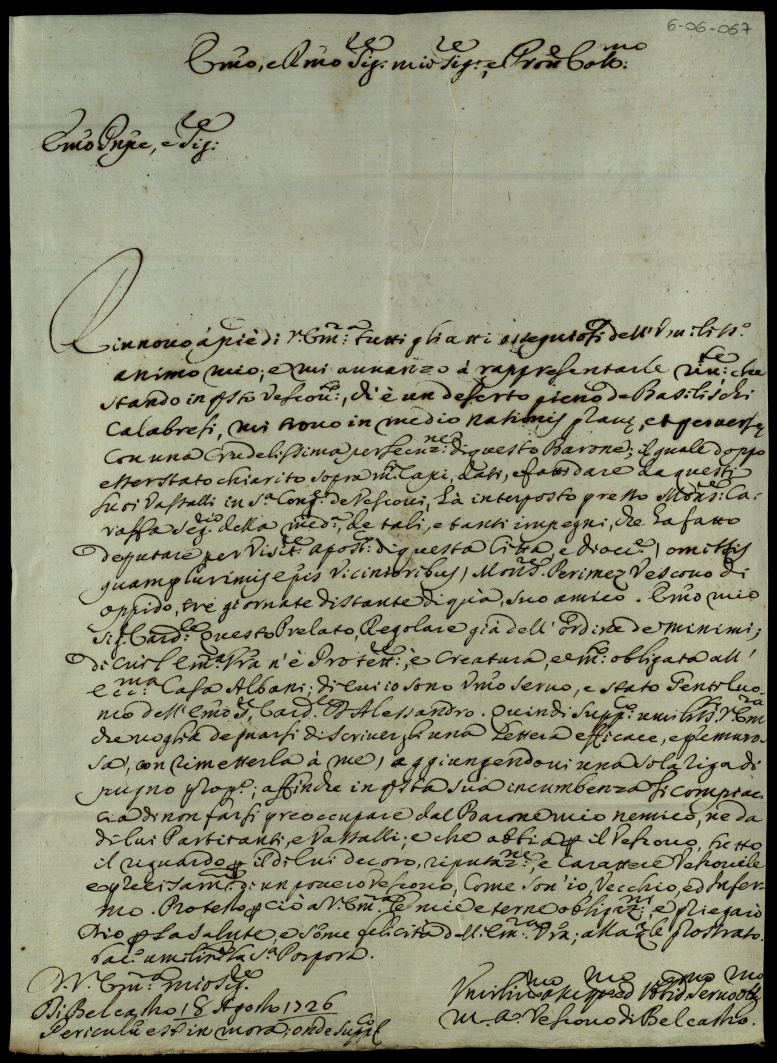 6-06-067
Em̃o, e Rmo Sig.re mio Sig.re, e Prõn Colmo:
Em̃o Prñpe, e Sig.re
Rinnovo à piè di V.Em.za tutti gli atti ossequiosi dell' Vm:liss.o
animo mio; e mi avvanzo à rappresentarle riv:te che
stando in q̃sto Vescov:do, ch'è un deserto pieno de Basilischi
Calabresi, mi trovo in medio nationis pravę, et perversę
con una crudelissima persecuz:ne di questo Barone; il quale doppo
esser stato chiarito sopra m:ti Capi, dati, e fatti dare da questi
suoi Vassalli in S.a Cong.ne de Vescovi, hà interposto presso Mons:re Ca-
raffa Seg.rio della med:a, de tali, e tanti impegni, che hà fatto
deputare per Visit:re apost:co di questa Città, e dioce:, (omissis
quamplurimis ep̃is vicinioribus) Mons.r Perimez Vescovo di
Oppido, tre giornate distante di quà, suo amico. Em̃o mio
Sig.r Card:le questo Prelato, Regolare già dell' ordine de Minimi,
di cui l'Em:za Vr̃a n'è Protett:re, è Creatura, e m:to obligata all'
Ecc:ma Casa Albani, di cui io sono Vm̃o servo, e stato Gentiluo-
mo dell'Em̃o Sig.r Card.le D. Alessandro. Quindi supp:co umiliss:te V.Em:za
che voglia degnarsi di scriverli una Lettera efficace, e premuro-
sa, con rimetterla à me, aggiungendovi una sola riga di
pugno prop:o; affinche in q̃sta sua incumbenza si compiac-
cia di non farsi preoccupare dal Barone mio nemico, ne da
di lui Partitanti, e Vassalli; e che abbia p il Vescovo, tutto
il riguardo p il di lui decoro, riputaz:ne, e Carattere Vescovile
e precisam:te di un povero Vescovo, come son'io, Vecchio, ed Infer-
mo. Protesto p ciò a V.Em:za le mie eterne obligaz:ni, e priegarò
Dio p la salute, e som̃e felicità dell'Em:za Vr̃a; alla q.le prostrato
bacio umilm:te la S.a Porpora.
D. V. Em:za mio Sig.re
Di Belcastro 18 Agosto 1726
Periculũ est in mora; onde supp:co
Vmiliss.mo Devot.mo ed Oblig.mo Servo Obb.mo
M. A. Vescovo di Belcastro.